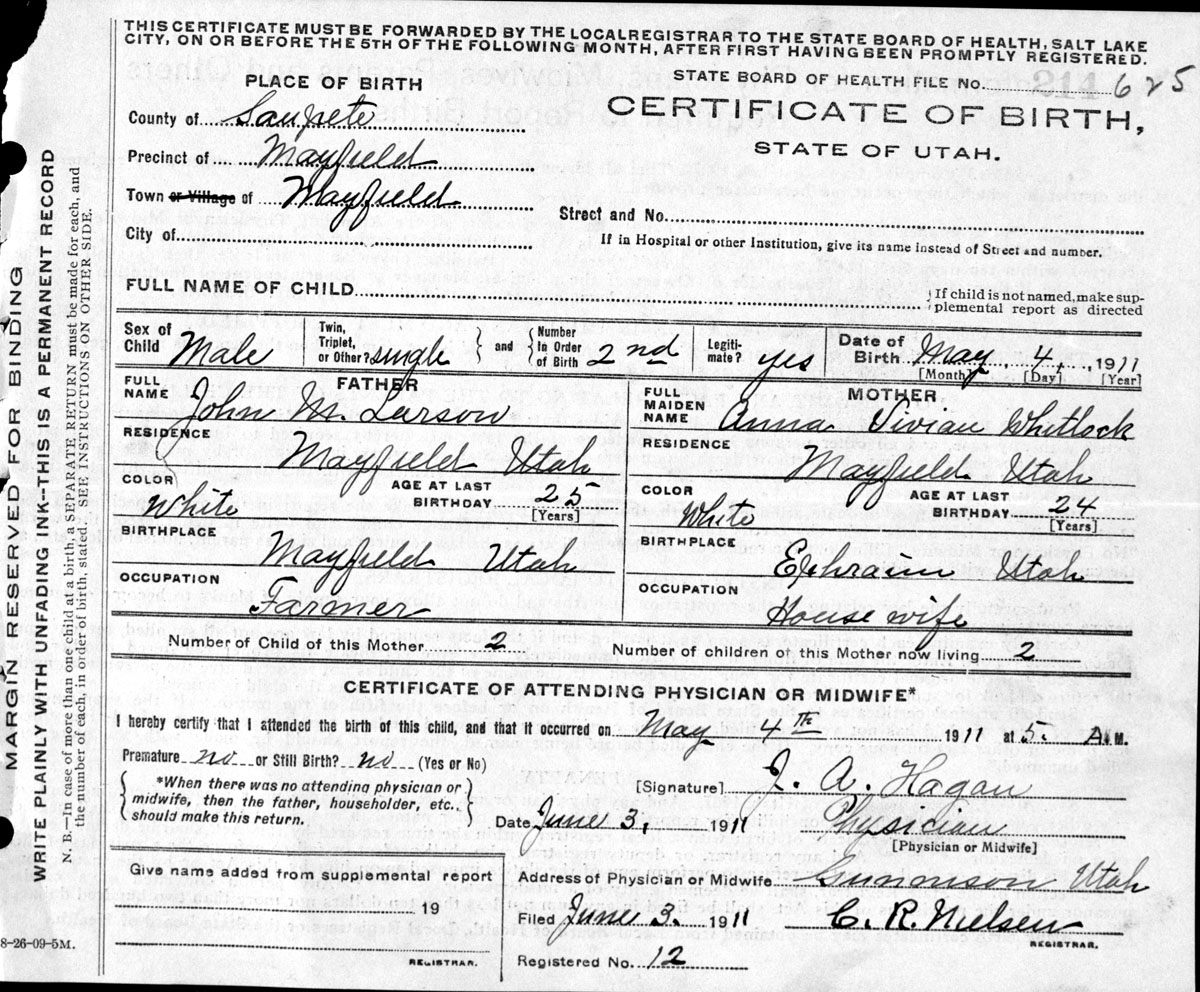 THIS CERTIFICATE MUST BE FORWARDED BY THE LOCALREGISTRAR TO THE STATE BOARD OF HEALTH, SALT LAKE
CITY, ON OR BEFORE THE 5TH OF THE FOLLOWING MONTH, AFTER FIRST HAVING BEEN PROMPTLY REGISTERED.
PLACE OF BIRTH
STATE BOARD OF HEALTH FILE No. 625
County of Sanpete
CERTIFICATE OF BIRTH,
STATE OF UTAH.
Precinct of Mayfield
Town or Village of Mayfield
Street and No.
City of
If in Hospital or other Institution, give its name instead of Street and number.
FULL NAME OF CHILD
If child is not named, make sup-
plemental report as directed
Sex of Child Male
Twin, Triplet, or Other? single
and
Number in Order of Birth 2nd
Legiti- mate? yes
Date of Birth May 4, 1911
[Month] [Day] [Year]
FATHER
FULL NAME John M. Larson
RESIDENCE Mayfield Utah
COLOR White
AGE AT LAST BIRTHDAY 25
[Years]
BIRTHPLACE Mayfield Utah
OCCUPATION Farmer
MOTHER
FULL MAIDEN NAME Anna Vivian Whitlock
RESIDENCE Mayfield Utah
COLOR White
AGE AT LAST BIRTHDAY 24
[Years]
BIRTHPLACE Ephraim Utah
OCCUPATION House wife
Number of Child of this Mother 2
Number of children of this Mother now living 2
CERTIFICATE OF ATTENDING PHYSICIAN OR MIDWIFE*
I hereby certify that I attended the birth of this child, and that it occurred on May 4th 1911 at 5. A.M.
Premature no or Still Birth? no (Yes or No)
*When there was no attending physician or
midwife, then the father, householder, etc.,
should make this return.
[Signature] J. A. Hagan
Date June 3, 1911
Physician
[Physician or Midwife]
Give name added from supplemental report
19
REGISTRAR.
Address of Physician or Midwife Gunnison Utah
Filed June 3. 1911
C. R. Nielsen
REGISTRAR.
Registered No. 12
8-26-09-5M.
MARGIN RESERVED FOR BINDING
WRITE PLAINLY WITH UNFADING INK--THIS IS A PERMANENT RECORD
N. B.—In case of more than one child at a birth, a SEPARATE RETURN must be made for each, and
the number of each, in order of birth, stated. SEE INSTRUCTIONS ON OTHER SIDE.